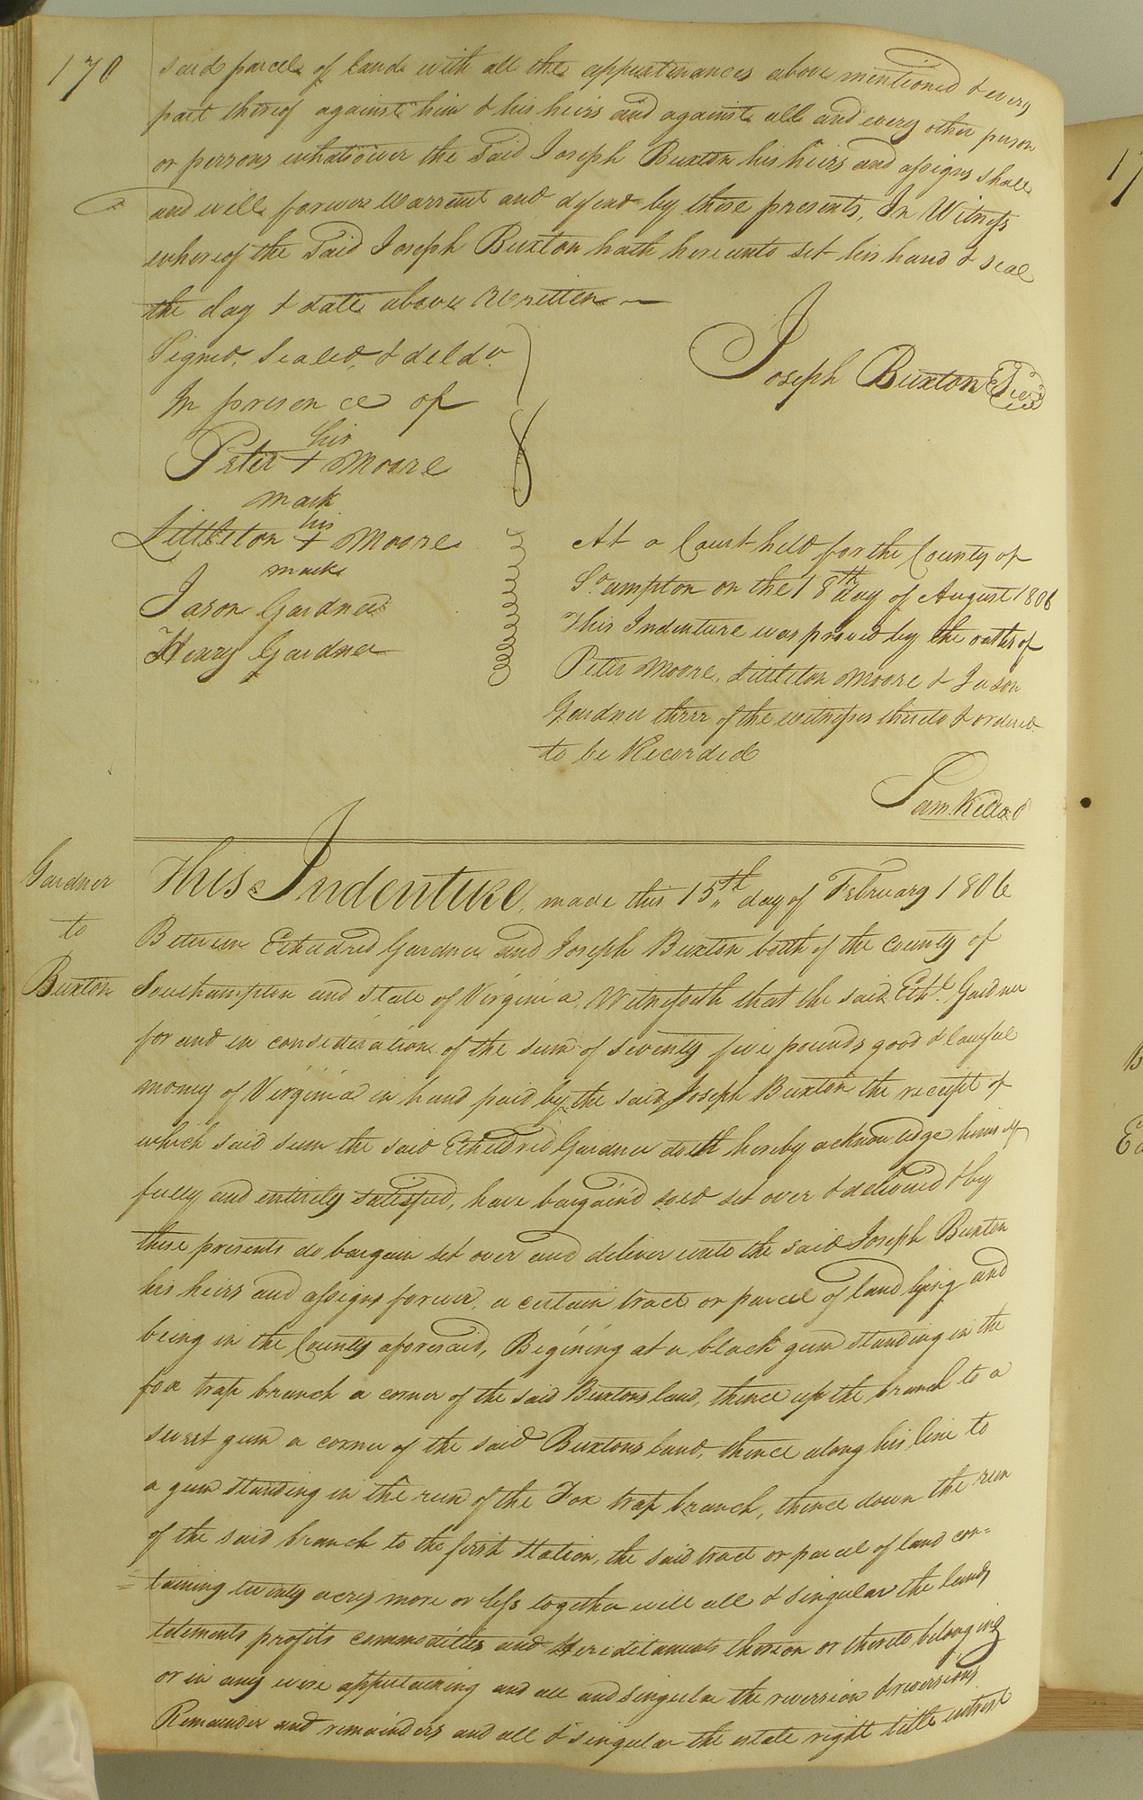 170
said parcel of land with all the appurtinances above mentioned & every
part thereof against him & his heirs and against all and every other person
or persons whatsoever the said Joseph Buxton his heirs and assigns shall
and will forever Warrant and defend by these presents, In Witness
whereof the said Joseph Buxton hath hereunto set his hand & seal
the day & date above written
Signed, Sealed, & deld
In presence of
Joseph Buxton Seal
his
Peter + Moore
mark
his
Littleton + Moore
mark
Jason Gardner
Henry Gardner
At a Court held for the County of
So.ampton on the 18th day of August 1806
This Indenture was proved by the oaths of
Peter Moore, Littleton Moore & Jason
Gardner three of the witnesses thereto & ordered
to be Recorded
Sam. Kello
Gardner
to
Buxton
This Indenture, made this 15th day of February 1806
Between Etheldred Gardner and Joseph Buxton both of the county of
Southampton and State of Virginia, Witnesseth that the said Ethd. Gardner
for and in consideration of the sum of seventy five pounds good & lawful
money of Virginia in hand paid by the said Joseph Buxton the receipt of
which said sum the said Etheldred Gardner doth hereby acknowledge himself
fully and entirely satisfied, have bargain'd sold set over & delivered & by
these presents do bargain set over and deliver unto the said Joseph Buxton
his heirs and assigns forever, a certain tract or parcel of land lying and
being in the County aforesaid, Begining at a black gum standing in the
fox trap branch a corner of the said Buxtons land, thence up the branch to a
sweet gum a corner of the said Buxtons land, thence along his line to
a gum standing in the run of the Fox trap branch, thence down the run
of the said branch to the first station, the said tract or parcel of land con=
=taining twenty acres more or less together will all & singular the lands
tetements profits commodities and Hereditaments thereon or thereto belonging
or in any wise appertaining and all and singular the reversion & reversions
Remainder and remainders and all & singular the estate right title intrest